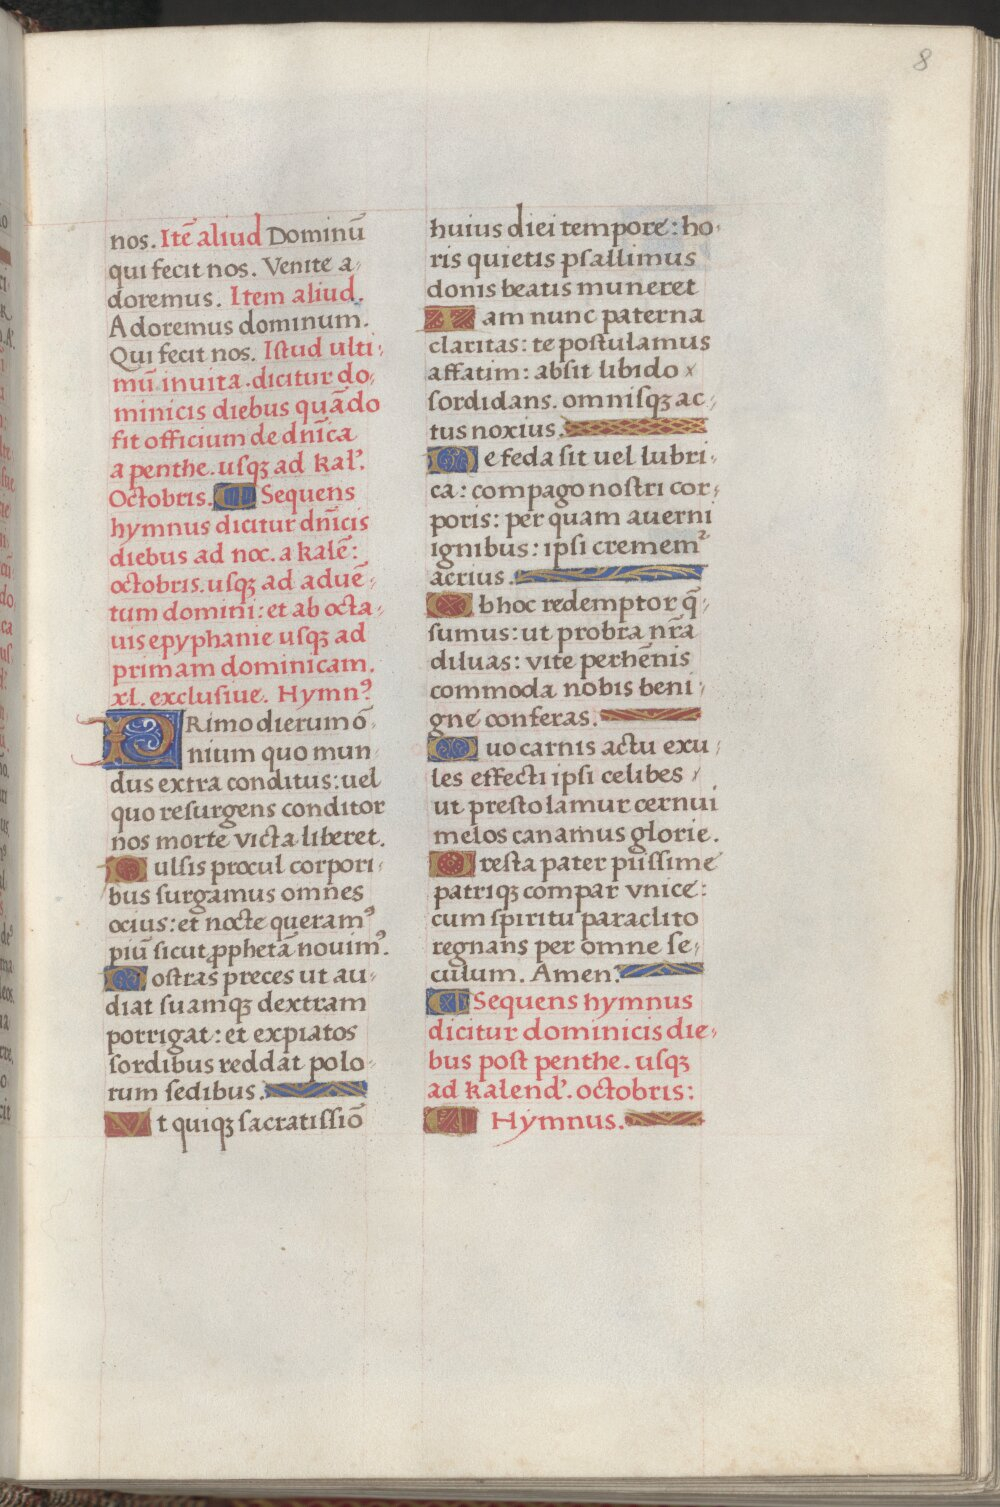 8
nos. Itē aliud Dominū
qui fecit nos. Venite a⸗
doremus. Item aliud.
Adoremus dominum.
Qui fecit nos. Istud ulti⸗
mū inuita.dicitur do⸗
minicis diebus quādo
fit officium de dn̄ica
a penthe.usqꝫ ad kal'.
Octobris. Sequens
hymnus dicitur dn̄icis
diebus ad noc. a kalē:
octobris.usqꝫ ad aduē⸗
tum domini: et ab octa⸗
uis epyphanie usqꝫ ad
primam dominicam.
xl. exclusiue. Hymnꝰ
PRimo dierum ō⸗
nium quo mun⸗
dus extra conditus: uel
quo resurgens conditor
nos morte victa liberet.
Pulsis procul corpori⸗
bus surgamus omnes
ocius: et nocte queramꝰ
piū sicut ꝓphetā nouimꝰ.
Nostras preces ut au⸗
diat suamqꝫ dextram
porrigat: et expiatos
sordibus reddat polo⸗
rum sedibus.
Vt quiqꝫ sacratissiō
huius diei tempore: ho⸗
ris quietis psallimus
donis beatis muneret
Iam nunc paterna
claritas: te postulamus
affatim: absit libido
sordidans. omnisqꝫ ac⸗
tus noxius.
Ne feda sit uel lubri⸗
ca: compago nostri cor⸗
poris: per quam auerni
ignibus: ipsi crememᷣ
acrius.
Ob hoc redemptor q̄⸗
sumus: ut probra nr̄a
diluas: vite perhēnis
commoda nobis beni⸗
gne conferas.
Quo carnis actu exu⸗
les effecti ipsi celibes
ut prestolamur cernui
melos canamus glorie.
Presta pater piissime
patriqꝫ compar vnice:
cum spiritu paraclito
regnans per omne se⸗
culum. Amen.
Sequens hymnus
dicitur dominicis die⸗
bus post penthe. usqꝫ
ad kalend'. octobris:
Hymnus.